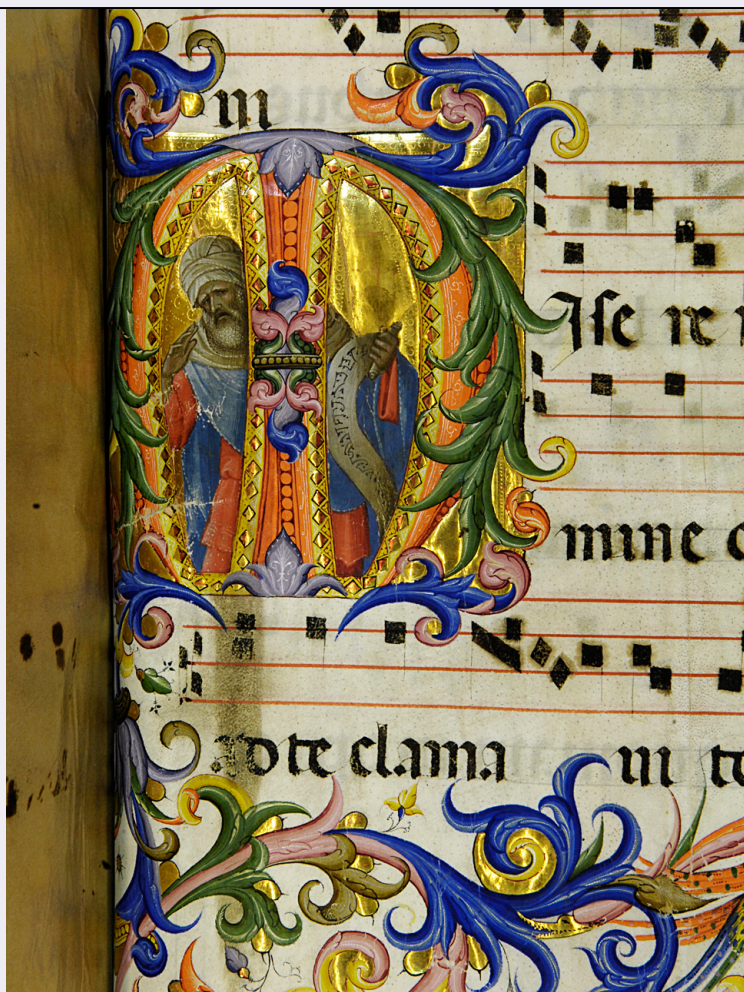 m
MIse re
mine
ad te clama ui to